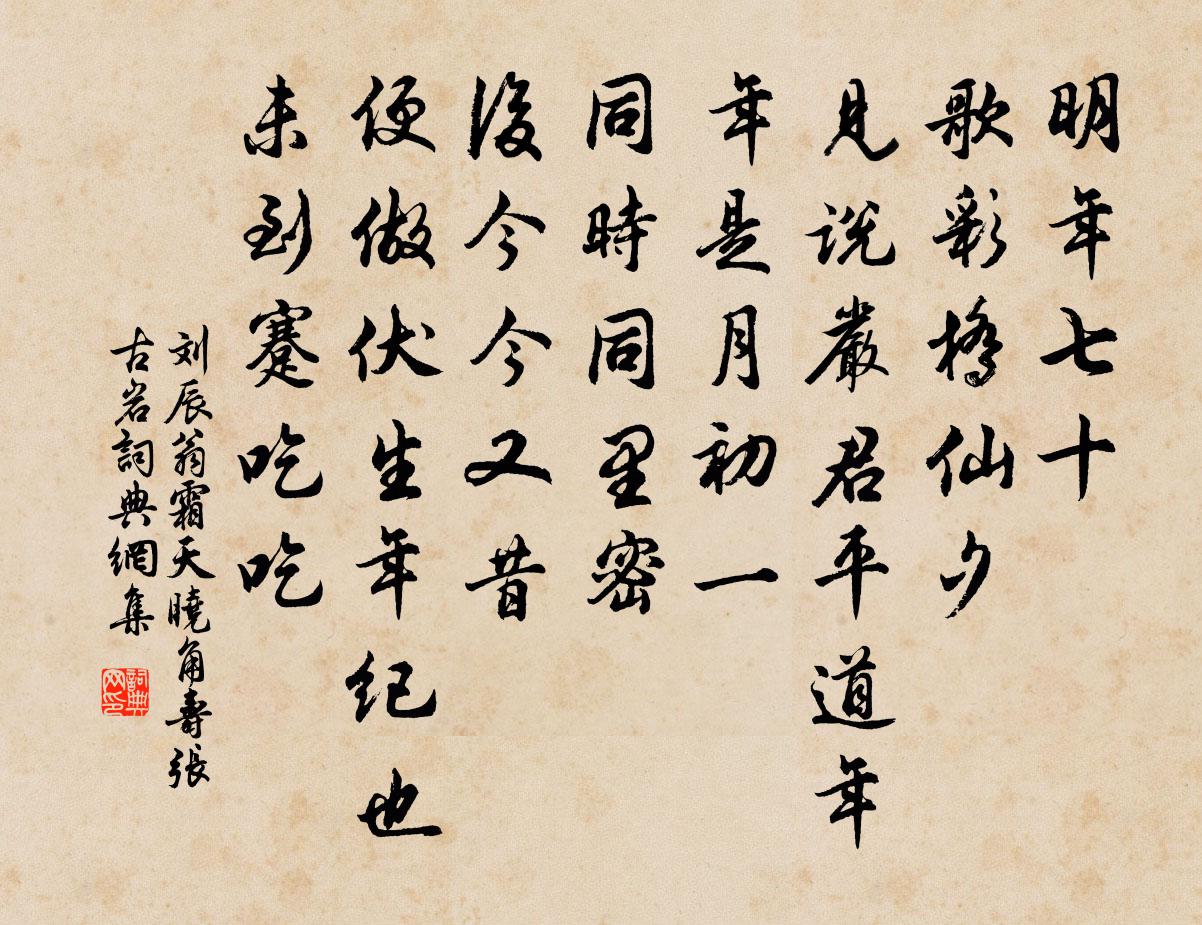 明年七十
歌彩橋仙夕
見說嚴君平道年
年是月初一
同時同里密
後今今又昔
便做伏生年纪也
未到蹇吃吃
刘辰翁霜天曉角壽張
古岩詞典網集
詞典网印